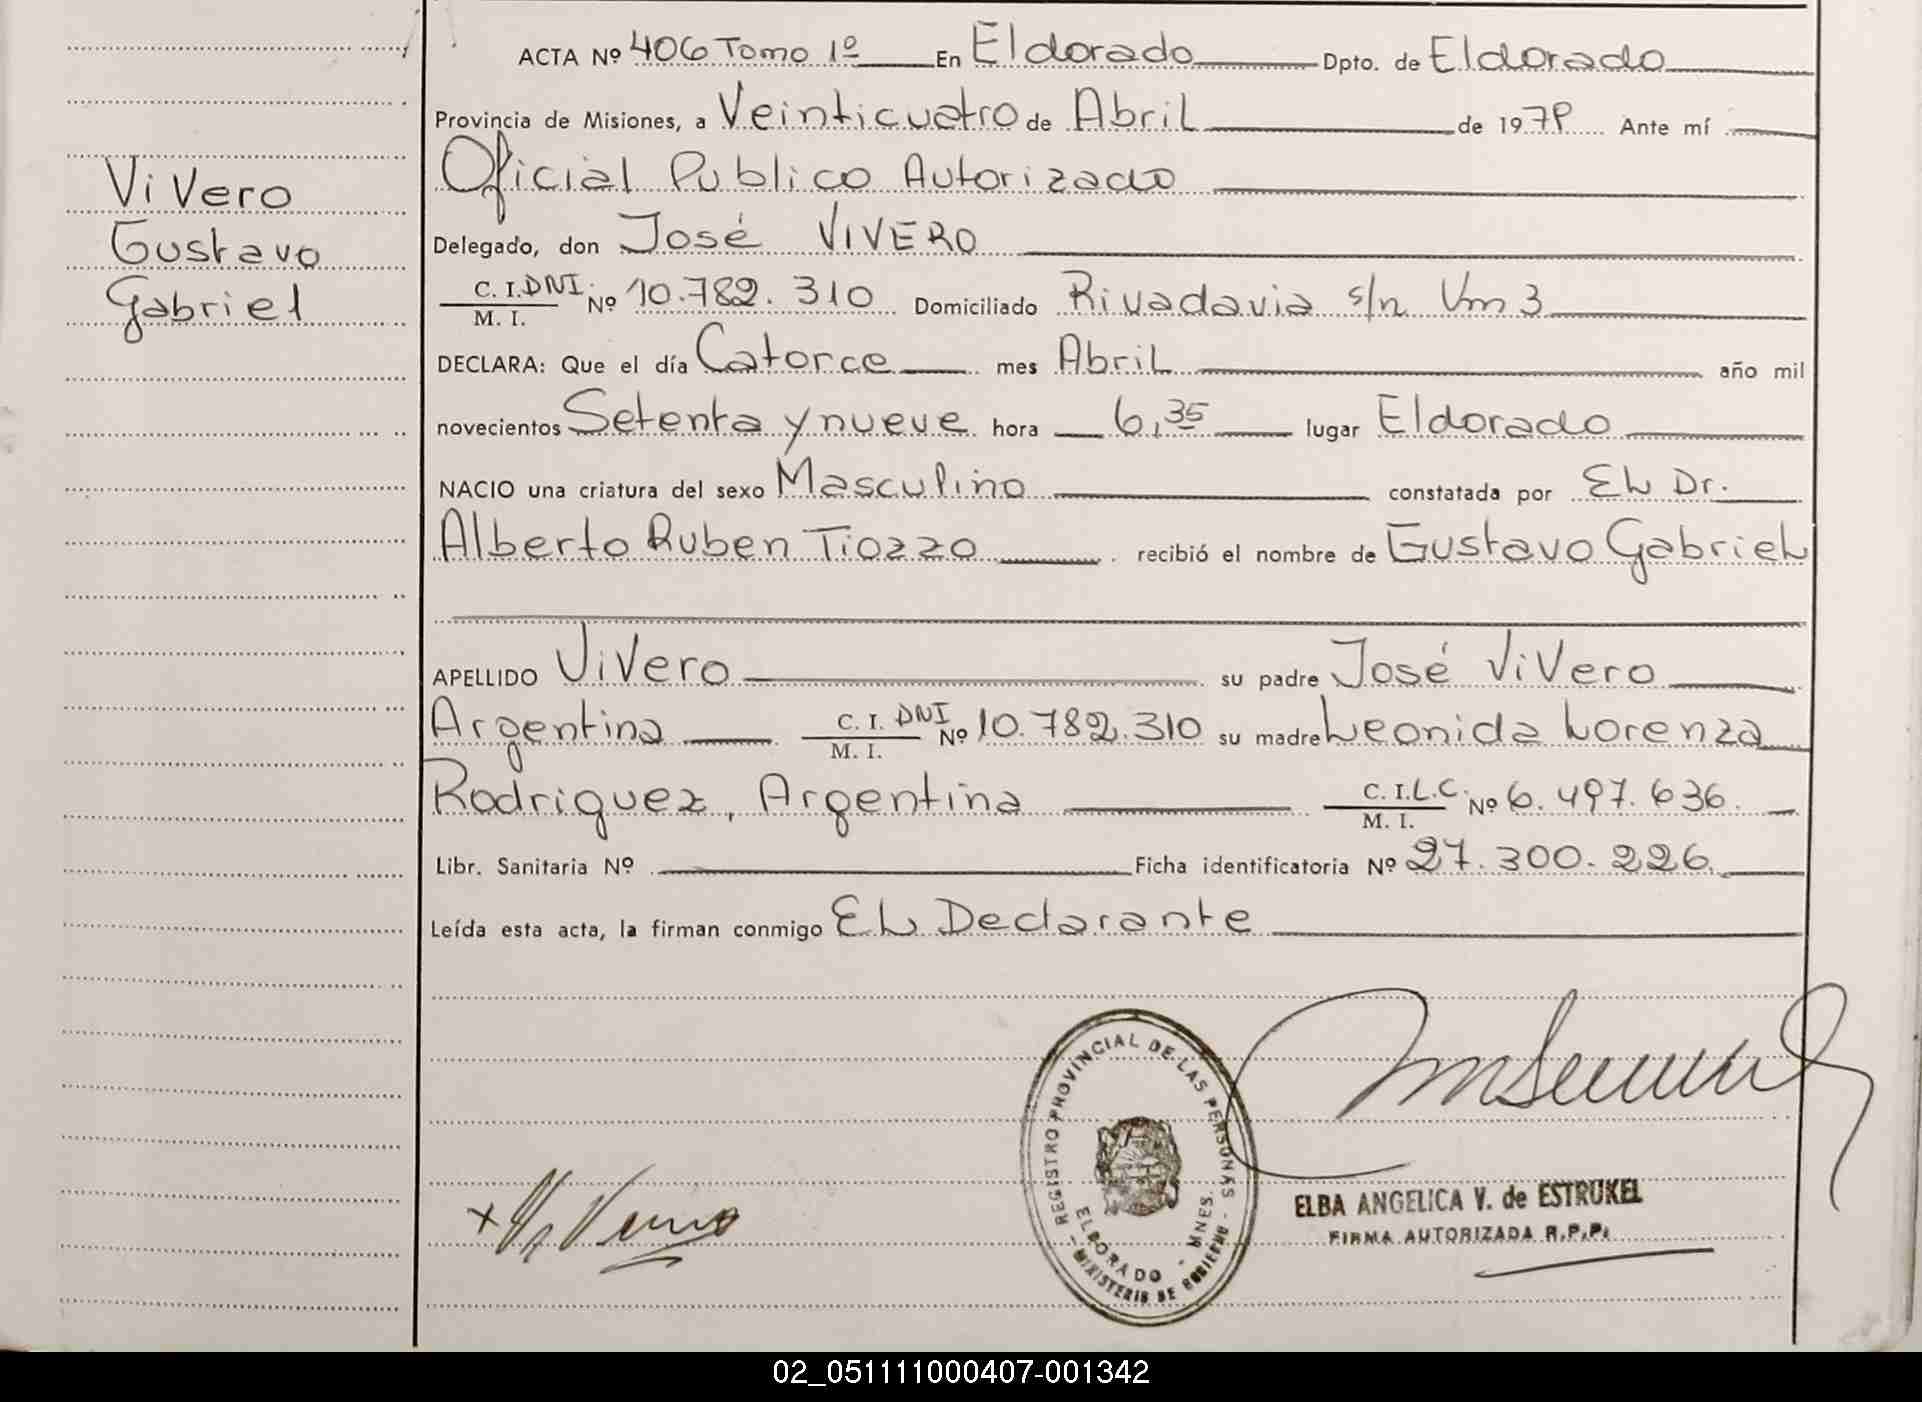 ACTA Nº 406 Tomo 1º En Eldorado Dpto. de Eldorado
Provincia de Misiones, a Veinticuatro de Abril de 1979 Ante mí
Oficial Publico Autorizado
Delegado, don José VIVERO
C. I. DNI Nº 10.782.310 Domiciliado Rivadavia s/n Km 3
M. I.
DECLARA: Que el día Catorce mes Abril año mil
novecientos Setenta y nueve hora 6,35 lugar Eldorado
NACIO una criatura del sexo Masculino constatada por EL Dr.
Alberto Ruben Tiozzo recibió el nombre de Gustavo Gabriel
APELLIDO ViVero su padre José ViVero
Argentina C. I. DNI Nº 10.782.310 su madre Leonida Lorenza
M. I.
Rodriguez, Argentina C. I. L.C. Nº 6.497.636.
M. I.
Libr. Sanitaria Nº Ficha identificatoria Nº 27.300.226.
Leída esta acta, la firman conmigo EL Declarante
ViVero
Gustavo
Gabriel
REGISTRO PROVINCIAL DE LAS PERSONAS
ELDORADO - MNES.
- MINISTERIO DE GOBIERNO -
ELBA ANGELICA V. de ESTRUKEL
FIRMA AUTORIZADA R.P.P.
02_051111000407-001342